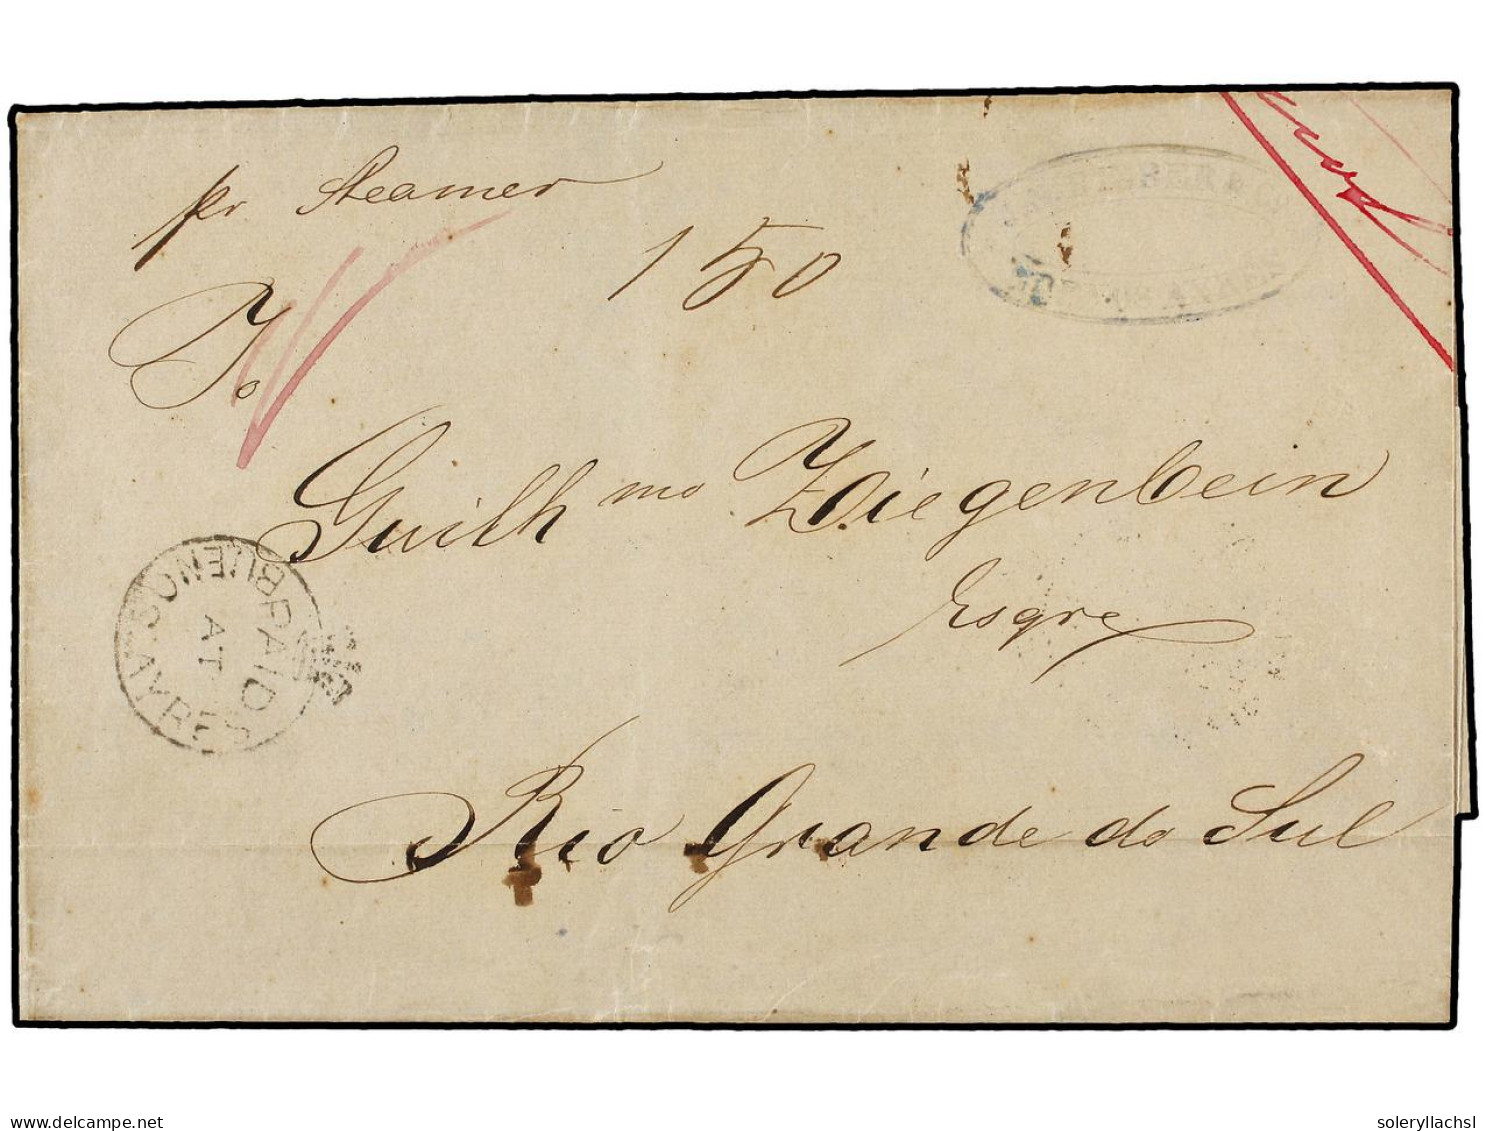 pr Steamer
150
To
Guilhmo Ziegenbein
Esqre
PAID
AT
BUENOS AYRES
BUENOS AYRES
Rio Grande do Sul
delcampe.net
soleryllachsl